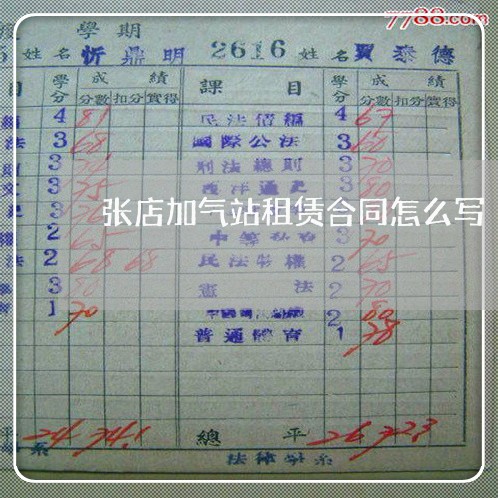 7788.com
學期
5 姓名 忻鼎明 2616 姓名 賈泰德
目 學分 成績 分數 扣分 實得 課目 學分 成績 分數 扣分 實得
4 81 民法債編 4 67
法 3 68 國際公法 3 60
3 刑法總則 3 70
3 75 西洋通史 3 80
張店加气站租赁合同怎么写
2 65 3 70
法 2 68 68 民法物權 2 65
3 80 憲法 2 70
1 70 2 80
普通體育 1 78
平 24 74.1 總平 26 72.3
系 法律學系